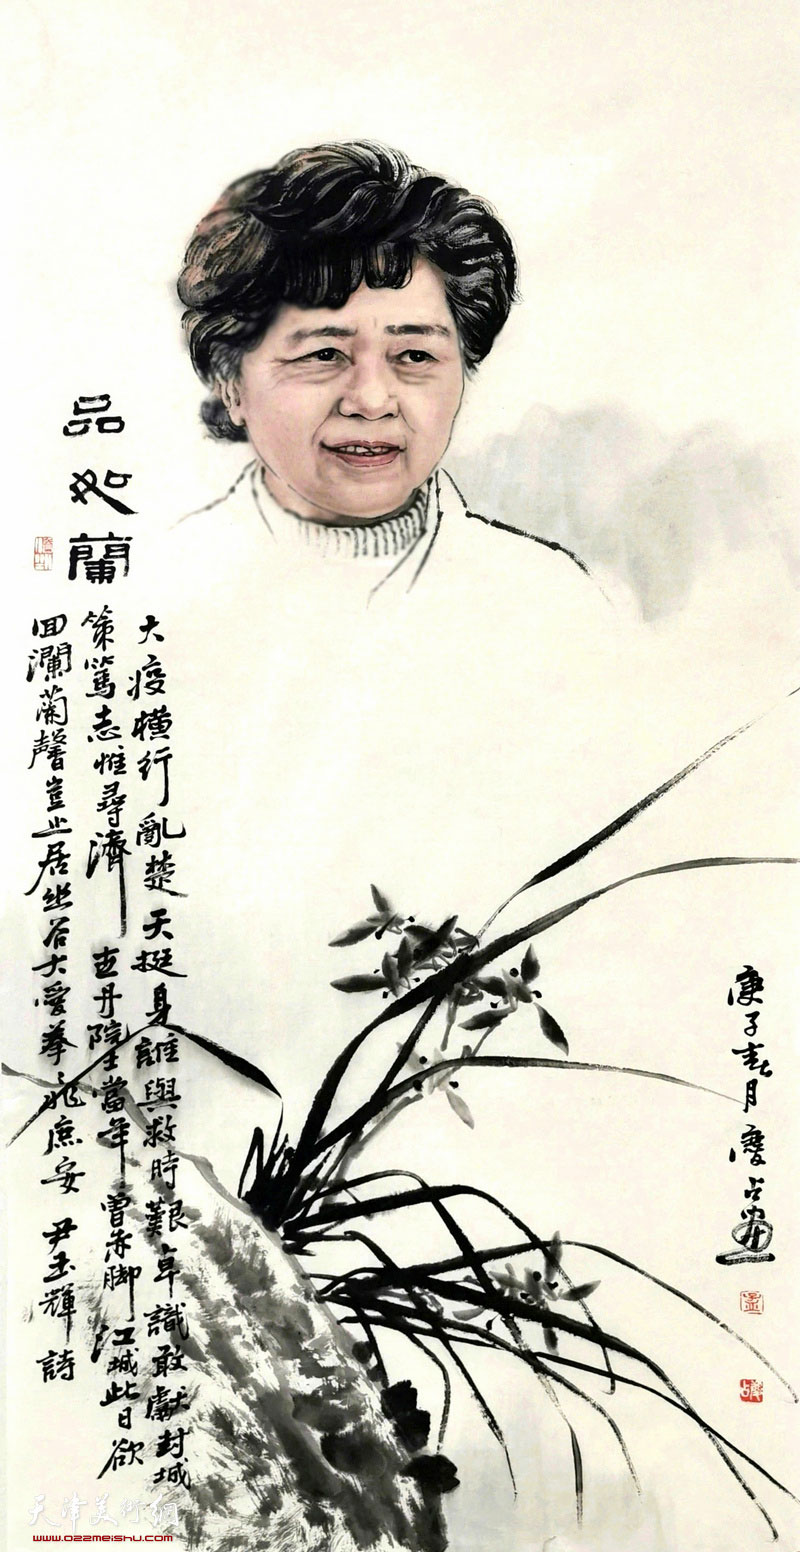 品如蘭
大疫橫行亂楚天挺身誰與救時艱卓識敢獻封城
策篤志惟尋濟世丹院士當年曾赤腳江城此日欲
回瀾蘭馨豈止居幽谷大愛擎飛庶安 尹玉輝詩
庚子春月慶占畫
天津美術網
www.022meishu.com